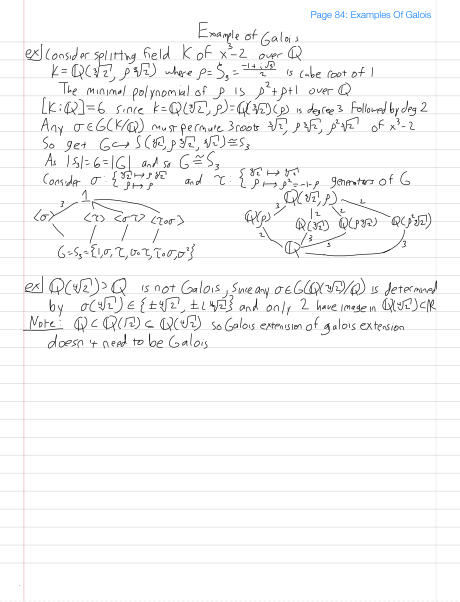 Page 84: Examples Of Galois
Example of Galois
ex] Consider splitting field K of x³-2 over ℚ
K = ℚ(∛2, ρ∛2) where ρ = ζ₃ = (-1+i√3)/2 is cube root of 1
The minimal polynomial of ρ is ρ²+ρ+1 over ℚ
[K:ℚ]=6 since K=ℚ(∛2, ρ)=ℚ(∛2)(ρ) is degree 3 followed by deg 2
Any σ∈G(K/ℚ) must permute 3 roots ∛2, ρ∛2, ρ²∛2 of x³-2
So get G↪S(∛2, ρ∛2, ρ²∛2)≅S₃
As |S₃|=6=|G| and so G≅S₃
Consider σ: {∛2↦ρ∛2 ρ↦ρ and τ: {∛2↦∛2 ρ↦ρ²=-1-ρ generators of G
1 ℚ(∛2, ρ)
3 3 2 2 2
<σ> <τ> <σ²τ> <τ∘σ> ℚ(ρ) ℚ(∛2) ℚ(ρ∛2) ℚ(ρ²∛2)
2 3 3 3
G=S₃={1,σ,τ,σ∘τ,τ∘σ,σ²} ℚ
ex] ℚ(∜2)⊃ℚ is not Galois, since any σ∈G(ℚ(∜2)/ℚ) is determined
by σ(∜2)∈{±∜2, ±i∜2} and only 2 have image in ℚ(∜2)⊂ℝ
Note: ℚ⊂ℚ(√2)⊂ℚ(∜2) so Galois extension of galois extension
doesn't need to be Galois